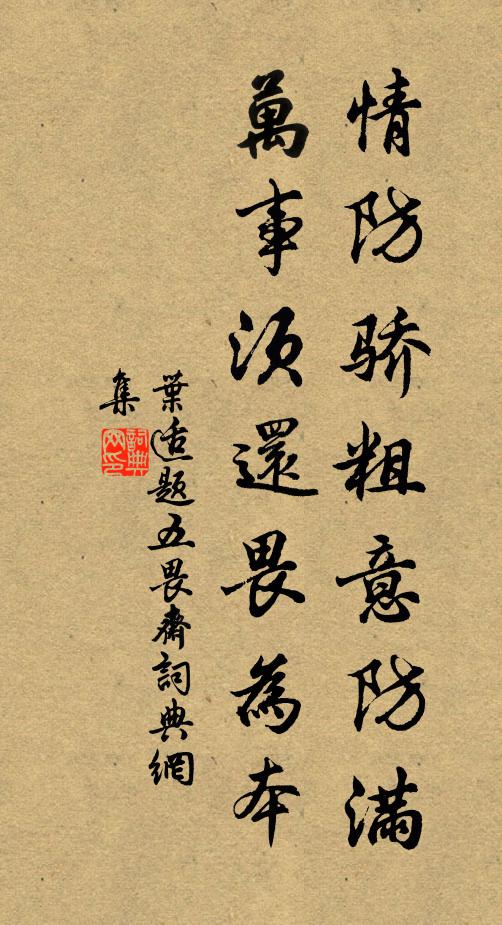 情防骄粗意防满
萬事须還畏為本
葉适題五畏齋詞典網
集
詞典
网印